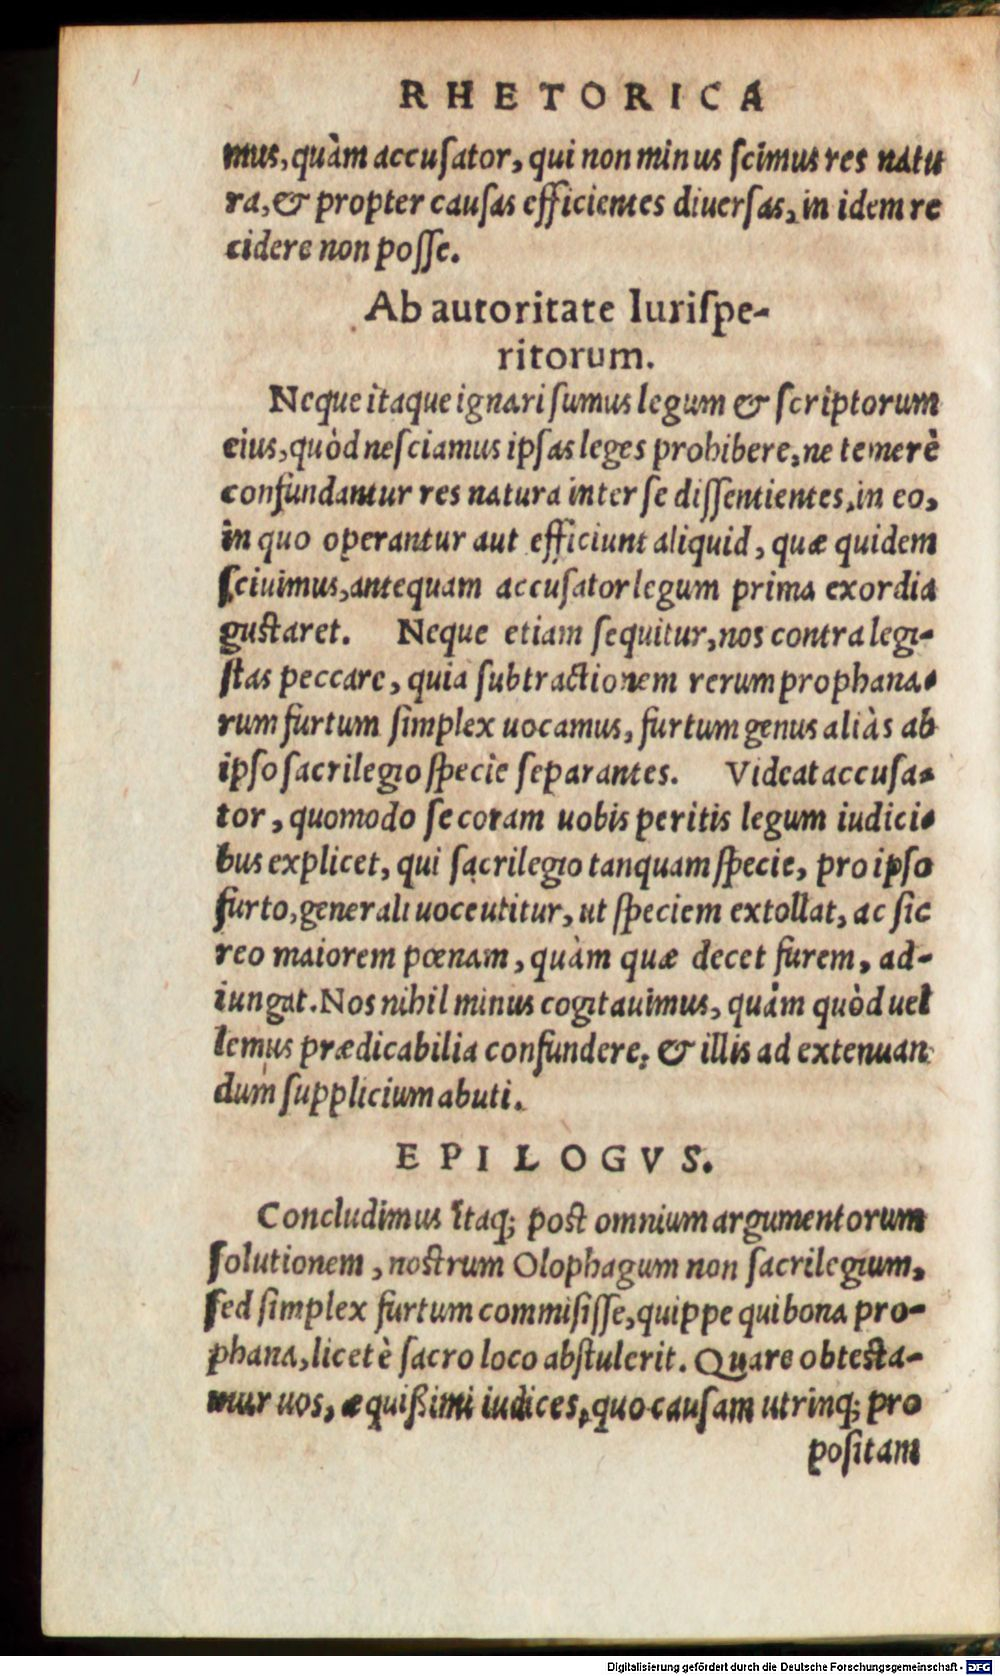 RHETORICA
mus, quàm accusator, qui non minus scimus res natu
ra, & propter causas efficientes diuersas, in idem re
cidere non posse.
Ab autoritate Iurispe-
ritorum.
Neque itaque ignari sumus legum & scriptorum
eius, quòd nesciamus ipsas leges prohibere, ne temerè
confundantur res natura inter se dissentientes, in eo,
in quo operantur aut efficiunt aliquid, quæ quidem
sciuimus, antequam accusator legum prima exordia
gustaret. Neque etiam sequitur, nos contra legi-
stas peccare, quia subtractionem rerum prophana-
rum furtum simplex uocamus, furtum genus aliàs ab
ipso sacrilegio specie separantes. Videat accusa-
tor, quomodo se coram uobis peritis legum iudici-
bus explicet, qui sacrilegio tanquam specie, pro ipso
furto, generali uoce utitur, ut speciem extollat, ac sic
reo maiorem pœnam, quàm quæ decet furem, ad-
iungat. Nos nihil minus cogitauimus, quàm quòd uel
lemus prædicabilia confundere, & illis ad extenuan
dum supplicium abuti.
EPILOGVS.
Concludimus itaq; post omnium argumentorum
solutionem, nostrum Olophagum non sacrilegium,
sed simplex furtum commisisse, quippe qui bona pro-
phana, licet è sacro loco abstulerit. Quare obtesta-
mur uos, æquißimi iudices, quo causam utrinq; pro
positam
Digitalisierung gefördert durch die Deutsche Forschungsgemeinschaft - DFG